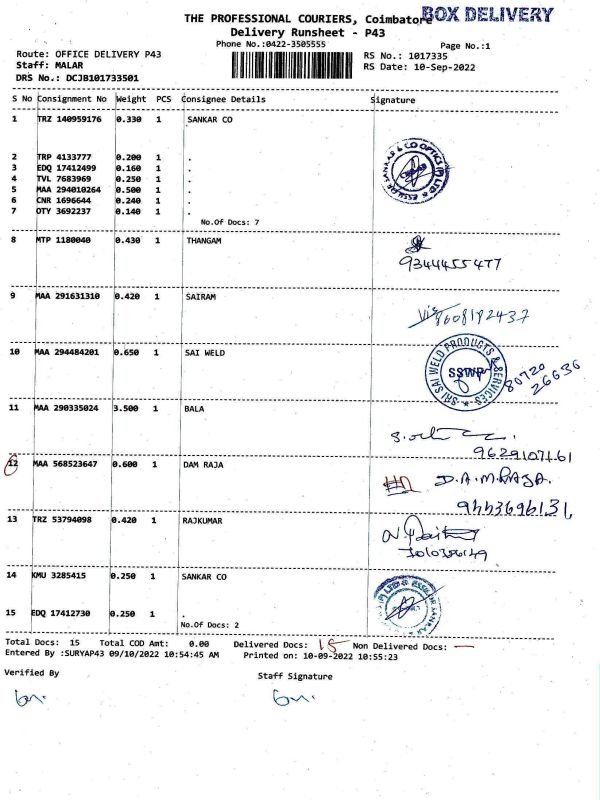 BOX DELIVERY
THE PROFESSIONAL COURIERS, Coimbatore
Delivery Runsheet - P43
Phone No.:0422-3505555
Page No.:1
Route: OFFICE DELIVERY P43
RS No.: 1017335
Staff: MALAR
RS Date: 10-Sep-2022
DRS No.: DCJB101733501
S No Consignment No Weight PCS Consignee Details Signature
1 TRZ 140959176 0.330 1 SANKAR CO
2 TRP 4133777 0.200 1 .
3 EDQ 17412499 0.160 1 .
4 TVL 7683969 0.250 1 .
5 MAA 294010264 0.500 1 .
6 CNR 1696644 0.240 1 .
7 OTY 3692237 0.140 1 .
No.Of Docs: 7
8 MTP 1180040 0.430 1 THANGAM
9344455477
9 MAA 291631310 0.420 1 SAIRAM
10 MAA 294484201 0.650 1 SAI WELD
SRI SAI WELD PRODUCTS & SERVICES
SSWP
80720
26636
11 MAA 290335024 3.500 1 BALA
9629107161
12 MAA 568523647 0.600 1 DAM RAJA
D.A.M.RAJA.
9443696131
13 TRZ 53794098 0.420 1 RAJKUMAR
14 KMU 3285415 0.250 1 SANKAR CO
15 EDQ 17412730 0.250 1 .
No.Of Docs: 2
Total Docs: 15 Total COD Amt: 0.00 Delivered Docs: 15 Non Delivered Docs: —
Entered By :SURYAP43 09/10/2022 10:54:45 AM Printed on: 10-09-2022 10:55:23
Verified By
Staff Signature